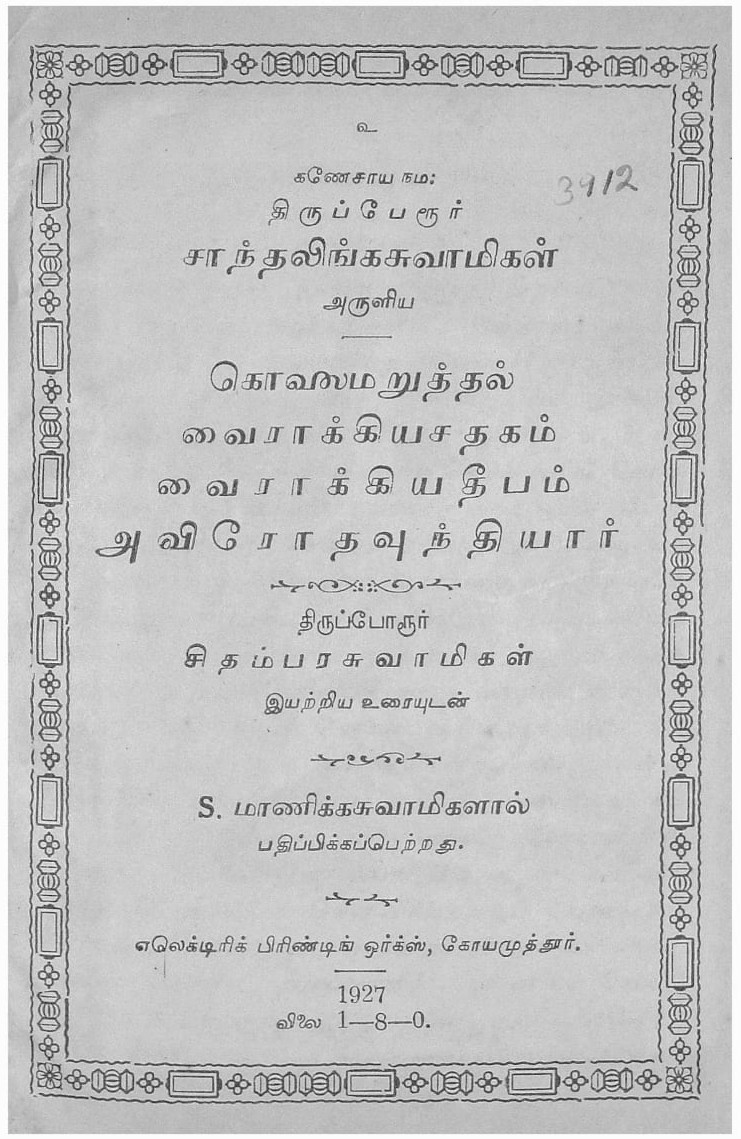 உ
கணேசாய நம:
3912
திருப்பேரூர்
சாந்தலிங்கசுவாமிகள்
அருளிய
கொலைமறுத்தல்
வைராக்கியசதகம்
வைராக்கியதீபம்
அவிரோதவுந்தியார்
திருப்போரூர்
சிதம்பரசுவாமிகள்
இயற்றிய உரையுடன்
S. மாணிக்கசுவாமிகளால்
பதிப்பிக்கப்பெற்றது.
எலெக்டிரிக் பிரிண்டிங் ஒர்க்ஸ், கோயமுத்தூர்.
1927
விலை 1—8—0.